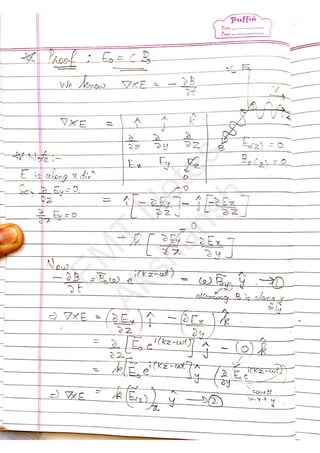 Puffin
Date
Page
* Proof : E₀ = C B₀
x, E
We know ∇×E = - ∂B/∂t
V
∇×E = | î ĵ k̂ |
| ∂/∂x ∂/∂y ∂/∂z |
| Ex Ey Ez |
0
B E₀(z) = 0
B₀(z) = 0
* Note :-
E is along x dirⁿ
So, ∂/∂z Ey = 0
∂/∂x Ey = 0
= î [ - ∂Ey/∂z ] - ĵ [ - ∂Ex/∂z ]
+ k̂ [ ∂Ey/∂x - ∂Ex/∂y ]
Now,
- ∂B/∂t = B̃₀(ω) e^i(kz-ωt) = ω B̃y ŷ → ①
assuming B is along y
⇒ ∇×E = (∂Ex/∂z) ĵ - (∂Ex/∂y) k̂
= ∂/∂z [Ẽ₀ e^i(kz-ωt)] ŷ - (0) k̂
= k [Ẽ₀ e^i(kz-ωt)] ŷ (∂/∂y Ẽ₀ e^i(kz-ωt))
constt w.r.t y
⇒ ∇×E = k (Ẽ(z))x ŷ → ②
EMT Notes